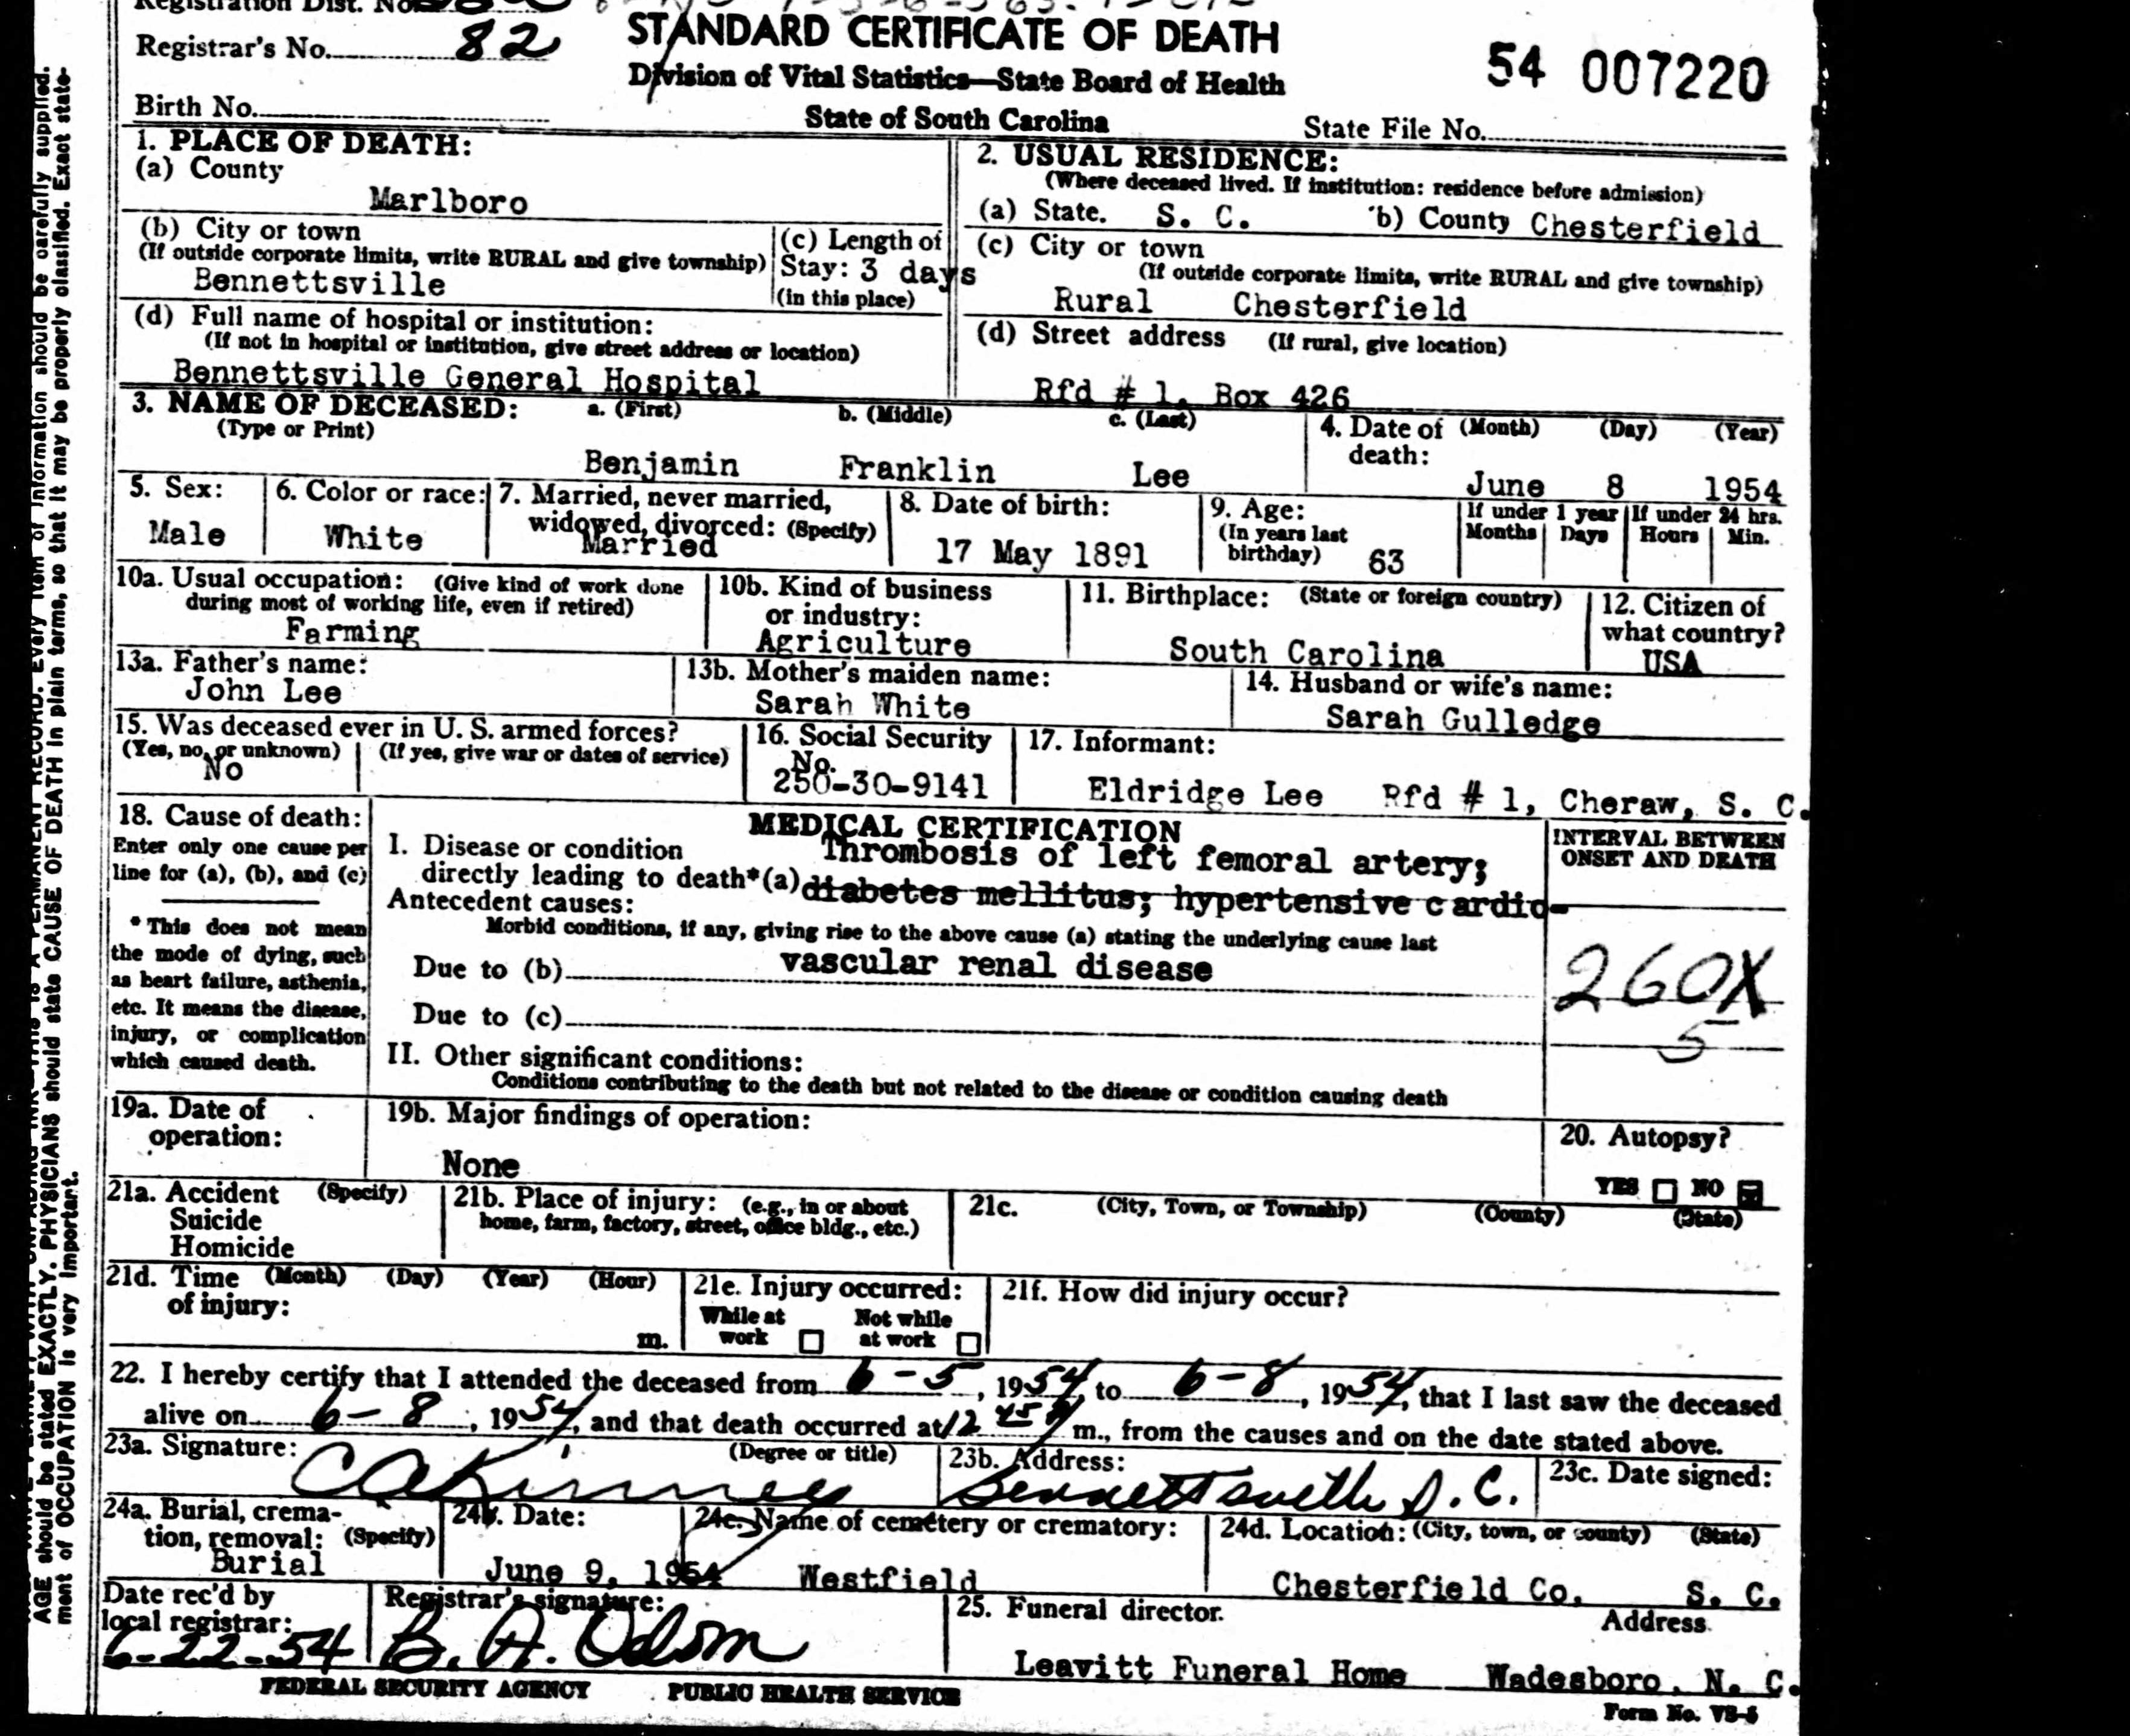 Registration Dist. No.
Registrar's No. 82
STANDARD CERTIFICATE OF DEATH
Division of Vital Statistics—State Board of Health
State of South Carolina
54 007220
Birth No.
State File No.
1. PLACE OF DEATH:
(a) County
Marlboro
(b) City or town
(If outside corporate limits, write RURAL and give township)
Bennettsville
(c) Length of
Stay: 3 days
(in this place)
(d) Full name of hospital or institution:
(If not in hospital or institution, give street address or location)
Bennettsville General Hospital
2. USUAL RESIDENCE:
(Where deceased lived. If institution: residence before admission)
(a) State. S. C. b) County Chesterfield
(c) City or town
(If outside corporate limits, write RURAL and give township)
Rural Chesterfield
(d) Street address (If rural, give location)
Rfd # 1, Box 426
3. NAME OF DECEASED: a. (First) b. (Middle) c. (Last)
(Type or Print)
Benjamin Franklin Lee
4. Date of (Month) (Day) (Year)
death:
June 8 1954
5. Sex:
Male
6. Color or race:
White
7. Married, never married,
widowed, divorced: (Specify)
Married
8. Date of birth:
17 May 1891
9. Age:
(In years last
birthday) 63
If under 1 year
Months Days
If under 24 hrs.
Hours Min.
10a. Usual occupation: (Give kind of work done
during most of working life, even if retired)
Farming
10b. Kind of business
or industry:
Agriculture
11. Birthplace: (State or foreign country)
South Carolina
12. Citizen of
what country?
USA
13a. Father's name:
John Lee
13b. Mother's maiden name:
Sarah White
14. Husband or wife's name:
Sarah Gulledge
15. Was deceased ever in U. S. armed forces?
(Yes, no, or unknown) (If yes, give war or dates of service)
No
16. Social Security
No.
250-30-9141
17. Informant:
Eldridge Lee Rfd # 1, Cheraw, S. C.
18. Cause of death:
Enter only one cause per
line for (a), (b), and (c)
* This does not mean
the mode of dying, such
as heart failure, asthenia,
etc. It means the disease,
injury, or complication
which caused death.
MEDICAL CERTIFICATION
I. Disease or condition Thrombosis of left femoral artery;
directly leading to death*(a) diabetes mellitus; hypertensive cardio-
Antecedent causes:
Morbid conditions, if any, giving rise to the above cause (a) stating the underlying cause last
Due to (b) vascular renal disease
Due to (c)
II. Other significant conditions:
Conditions contributing to the death but not related to the disease or condition causing death
INTERVAL BETWEEN
ONSET AND DEATH
260X
5
19a. Date of
operation:
19b. Major findings of operation:
None
20. Autopsy?
YES NO
21a. Accident (Specify)
Suicide
Homicide
21b. Place of injury: (e.g., in or about
home, farm, factory, street, office bldg., etc.)
21c. (City, Town, or Township) (County) (State)
21d. Time (Month) (Day) (Year) (Hour)
of injury:
m.
21e. Injury occurred:
While at Not while
work at work
21f. How did injury occur?
22. I hereby certify that I attended the deceased from 6-5, 1954, to 6-8, 1954, that I last saw the deceased
alive on 6-8, 1954, and that death occurred at 12 45 m., from the causes and on the date stated above.
23a. Signature: (Degree or title)
C A Kinney
23b. Address:
Bennettsville S. C.
23c. Date signed:
24a. Burial, crema-
tion, removal: (Specify)
Burial
24b. Date:
June 9, 1954
24c. Name of cemetery or crematory:
Westfield
24d. Location: (City, town, or county) (State)
Chesterfield Co. S. C.
Date rec'd by
local registrar:
6-22-54
Registrar's signature:
B. A. Odom
25. Funeral director. Address
Leavitt Funeral Home Wadesboro, N. C.
FEDERAL SECURITY AGENCY PUBLIC HEALTH SERVICE
Form No. VS-5
AGE should be stated EXACTLY. PHYSICIANS should state CAUSE OF DEATH in plain terms, so that it may be properly classified. Exact state-
ment of OCCUPATION is very important.